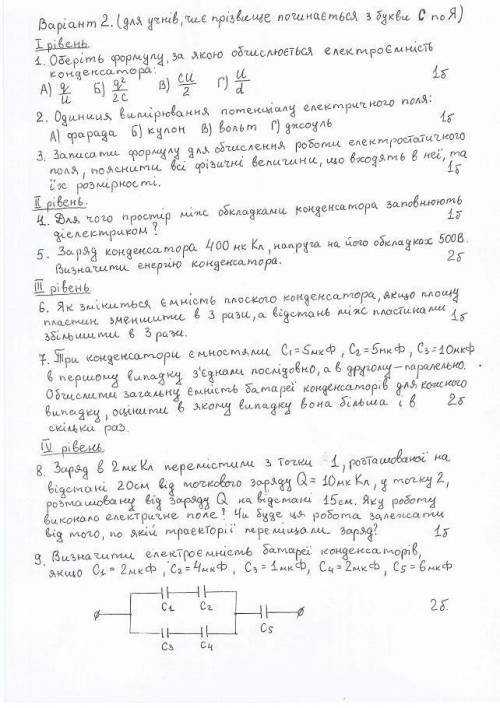 Варіант 2. (для учнів, чиє прізвище починається з букви С по Я)
І рівень.
1. Оберіть формулу, за якою обчислюється електроємність
конденсатора:
А) q/U Б) q²/2C В) CU/2 Г) U/d 1б
2. Одиниця вимірювання потенціалу електричного поля:
А) фарада Б) кулон В) вольт Г) джоуль 1б
3. Записати формулу для обчислення роботи електростатичного
поля, пояснити всі фізичні величини, що входять в неї, та
їх розмірності. 1б
ІІ рівень.
4. Для чого простір між обкладками конденсатора заповнюють
діелектриком? 1б
5. Заряд конденсатора 400 мкКл, напруга на його обкладках 500В.
Визначити енергію конденсатора. 2б
ІІІ рівень
6. Як зміниться ємність плоского конденсатора, якщо площу
пластин зменшити в 3 рази, а відстань між пластинами
збільшити в 3 рази. 1б
7. Три конденсатори ємностями C₁=5мкФ, C₂=5пкФ, C₃=10мкФ
в першому випадку з'єднали послідовно, а в другому – паралельно.
Обчислити загальну ємність батареї конденсаторів для кожного
випадку, оцінити в якому випадку вона більша і в
скільки раз. 2б
IV рівень.
8. Заряд в 2мкКл перемістили з точки 1, розташованої на
відстані 20см від точкового заряду Q = 10мкКл, у точку 2,
розташовану від заряду Q на відстані 15см. Яку роботу
виконало електричне поле? Чи буде ця робота залежати
від того, по якій траекторії переміщали заряд? 1б
9. Визначити електроємність батареї конденсаторів,
якщо C₁ = 2мкФ, C₂ = 4мкФ, C₃ = 1мкФ, C₄ = 2мкФ, C₅ = 6мкФ
C₁ C₂
C₅
C₃ C₄
2б.